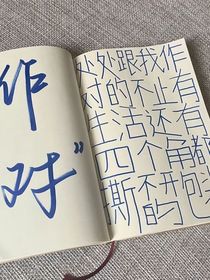 作
对”
处处跟我作
对的不止有
生活还有
四个角都
撕不开的包